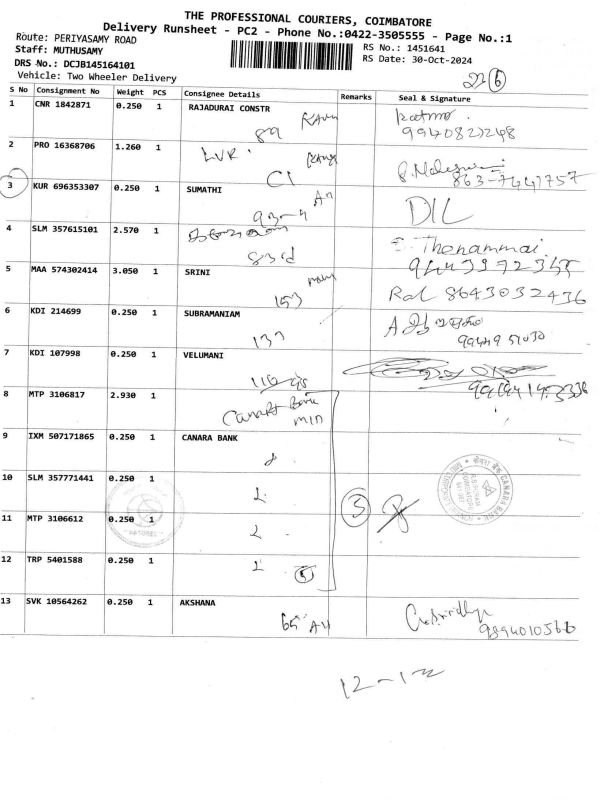 THE PROFESSIONAL COURIERS, COIMBATORE
Delivery Runsheet - PC2 - Phone No.:0422-3505555 - Page No.:1
Route: PERIYASAMY ROAD
RS No.: 1451641
Staff: MUTHUSAMY
RS Date: 30-Oct-2024
DRS No.: DCJB145164101
Vehicle: Two Wheeler Delivery
S No Consignment No Weight PCS Consignee Details Remarks Seal & Signature
1 CNR 1842871 0.250 1 RAJADURAI CONSTR
89 9940821248
2 PRO 16368706 1.260 1 LVR
C1 863-7441757
3 KUR 696353307 0.250 1 SUMATHI
93-4 DIL
4 SLM 357615101 2.570 1
83rd E. Thenammai
5 MAA 574302414 3.050 1 SRINI 9443972355
153 8643032436
6 KDI 214699 0.250 1 SUBRAMANIAM
137 99449 51030
7 KDI 107998 0.250 1 VELUMANI
8 MTP 3106817 2.930 1 Canara Bank
min
9 IXM 507171865 0.250 1 CANARA BANK
10 SLM 357771441 0.250 1
CANARA BANK
5
11 MTP 3106612 0.250 1
12 TRP 5401588 0.250 1
5
13 SVK 10564262 0.250 1 AKSHANA
65 9894010566